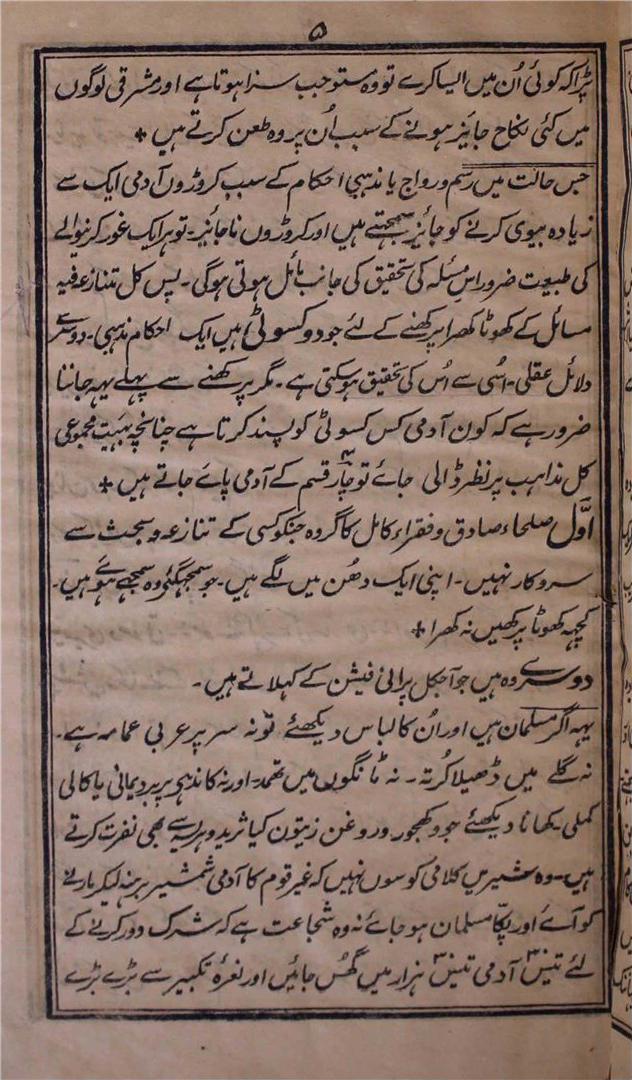 ۵
پڑا کہ کوئی اُن میں ایسا کرے تو وہ مستوجب سزا ہوتا ہے اور مشرقی لوگوں
میں کئی نکاح جایز ہونے کے سبب اُن پر وہ طعن کرتے ہیں +
جس حالت میں رسم و رواج یا مذہبی احکام کے سبب کروڑوں آدمی ایک سے
زیادہ بیوی کرنے کو جایز سمجھتے ہیں اور کروڑوں ناجائیز۔ تو ہر ایک غور کرنیوالے
کی طبیعت ضرور اس مسئلہ کی تحقیق کی جانب مائل ہوتی ہوگی۔ پس کل تنازعہ فیہ
مسائل کے کھوٹا کھرا پرکھنے کے لئے جو دو کسوٹی ہیں ایک احکام مذہبی۔ دوسرے
دلائل عقلی۔ اسُی سے اُس کی تحقیق ہوسکتی ہے۔ مگر پرکھنے سے پہلے یہہ جاننا
ضرور ہے کہ کون آدمی کس کسوٹی کو پسند کرتا ہے چنانچہ بہیئت مجموعی
کل مذاہب پر نظر ڈالی جائے تو چار ۴ قسم کے آدمی پائے جاتے ہیں +
اوّل صلحاء صادق و فقراء کامل کا گروہ جنکو کسی کے تنازعہ و بحث سے
سروکار نہیں۔ اپنی ایک دھُن میں لگے ہیں۔ جو سمجھگئے وہ سمجھے ہوئے ہیں۔
کچہہ کھوٹا پرکھیں نہ کھرا +
دوسرے وہ ہیں جو آجکل پرانی فیشن کے کہلاتے ہیں۔
یہہ اگر مسلمان ہیں اور اُن کا لباس دیکھئے تو نہ سر پر عربی عمامہ ہے۔
نہ گلے میں ڈھیلا کُرتہ۔ نہ ٹانگوں میں تھمد۔ اور نہ کاندہی پر بردیمانی یا کالی
کملی۔ کھانا دیکھئے جو و کھجور و روغن زیتون کیا ثرید و ہریسہ سے بھی نفرت کرتے
ہیں۔ وہ شیریں کلامی کوسوں نہیں کہ غیر قوم کا آدمی شمشیر برہنہ لیکر مارنے
کو آئے اور پکّا مسلمان ہو جائے نہ وہ شجاعت ہے کہ شرک دور کرنے کے
لئے تیس ۳۰ آدمی تیس ۳۰ ہزار میں گھُس جائیں اور نعرۂ تکبیر سے بڑے بڑے